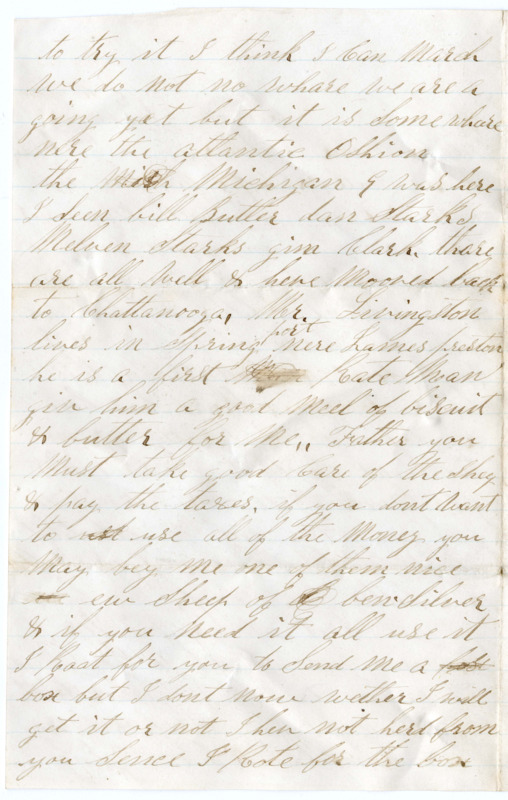 to try it I think I Can March
we do not no whare we are a
going yet but it is Some whare
nere the atlantic Oshion
the Michigan 9 was here
I Seen bill Butler dan Starks
Melven Starks gim Clark thare
are all well & heve Mooved back
to Chattanooga, Mr. Livingston
lives in Spring port nere James preston
he is a first Rate Mean
giv him a good Meel of biscuit
& butter for Me,, Father you
Must take good Care of the Shep
& pay the taxes, if you dont want
to use all of the Money you
May bey me one of them nice
ew Sheep of ben Silver
& if you need it all use it
I Roat for you to Send Me a
box but I dont now wether I will
get it or not I hev not herd from
you Sence I Rote for the box